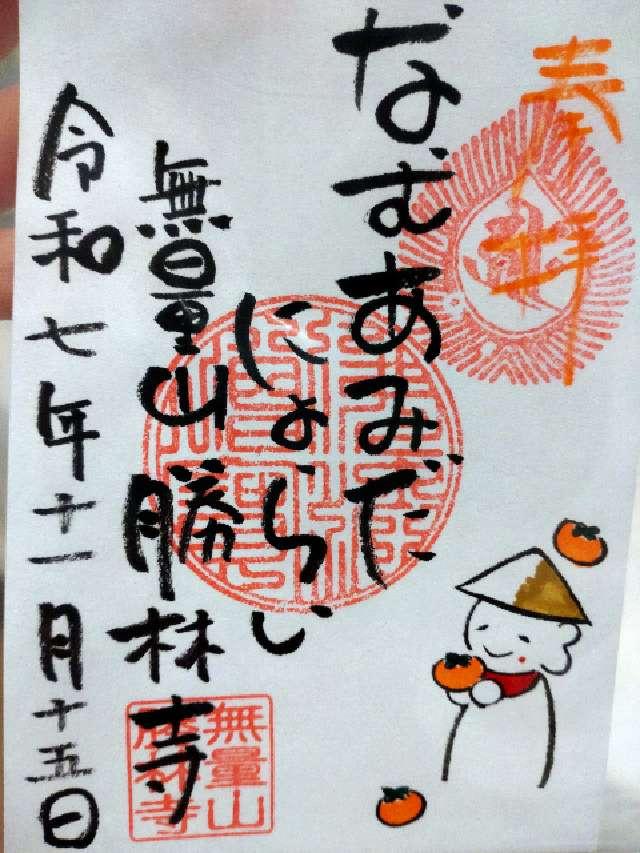 奉拝
なむあみだ
にょらい
無量山 勝林寺
令和七年十一月十五日
無量山
勝林寺